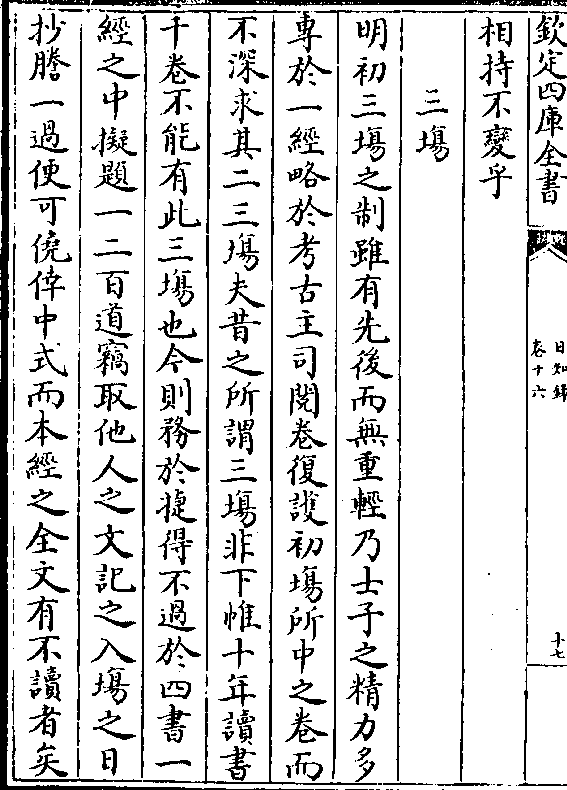 欽定四庫全書
日知錄
卷十六
十七
相持不變乎
三塲
明初三塲之制雖有先後而無重輕乃士子之精力多
專於一經略於考古主司閱卷復護初塲所中之卷而
不深求其二三塲夫昔之所謂三塲非下帷十年讀書
千卷不能有此三塲也今則務於捷得不過於四書一
經之中擬題一二百道竊取他人之文記之入塲之日
抄謄一過便可僥倖中式而本經之全文有不讀者矣